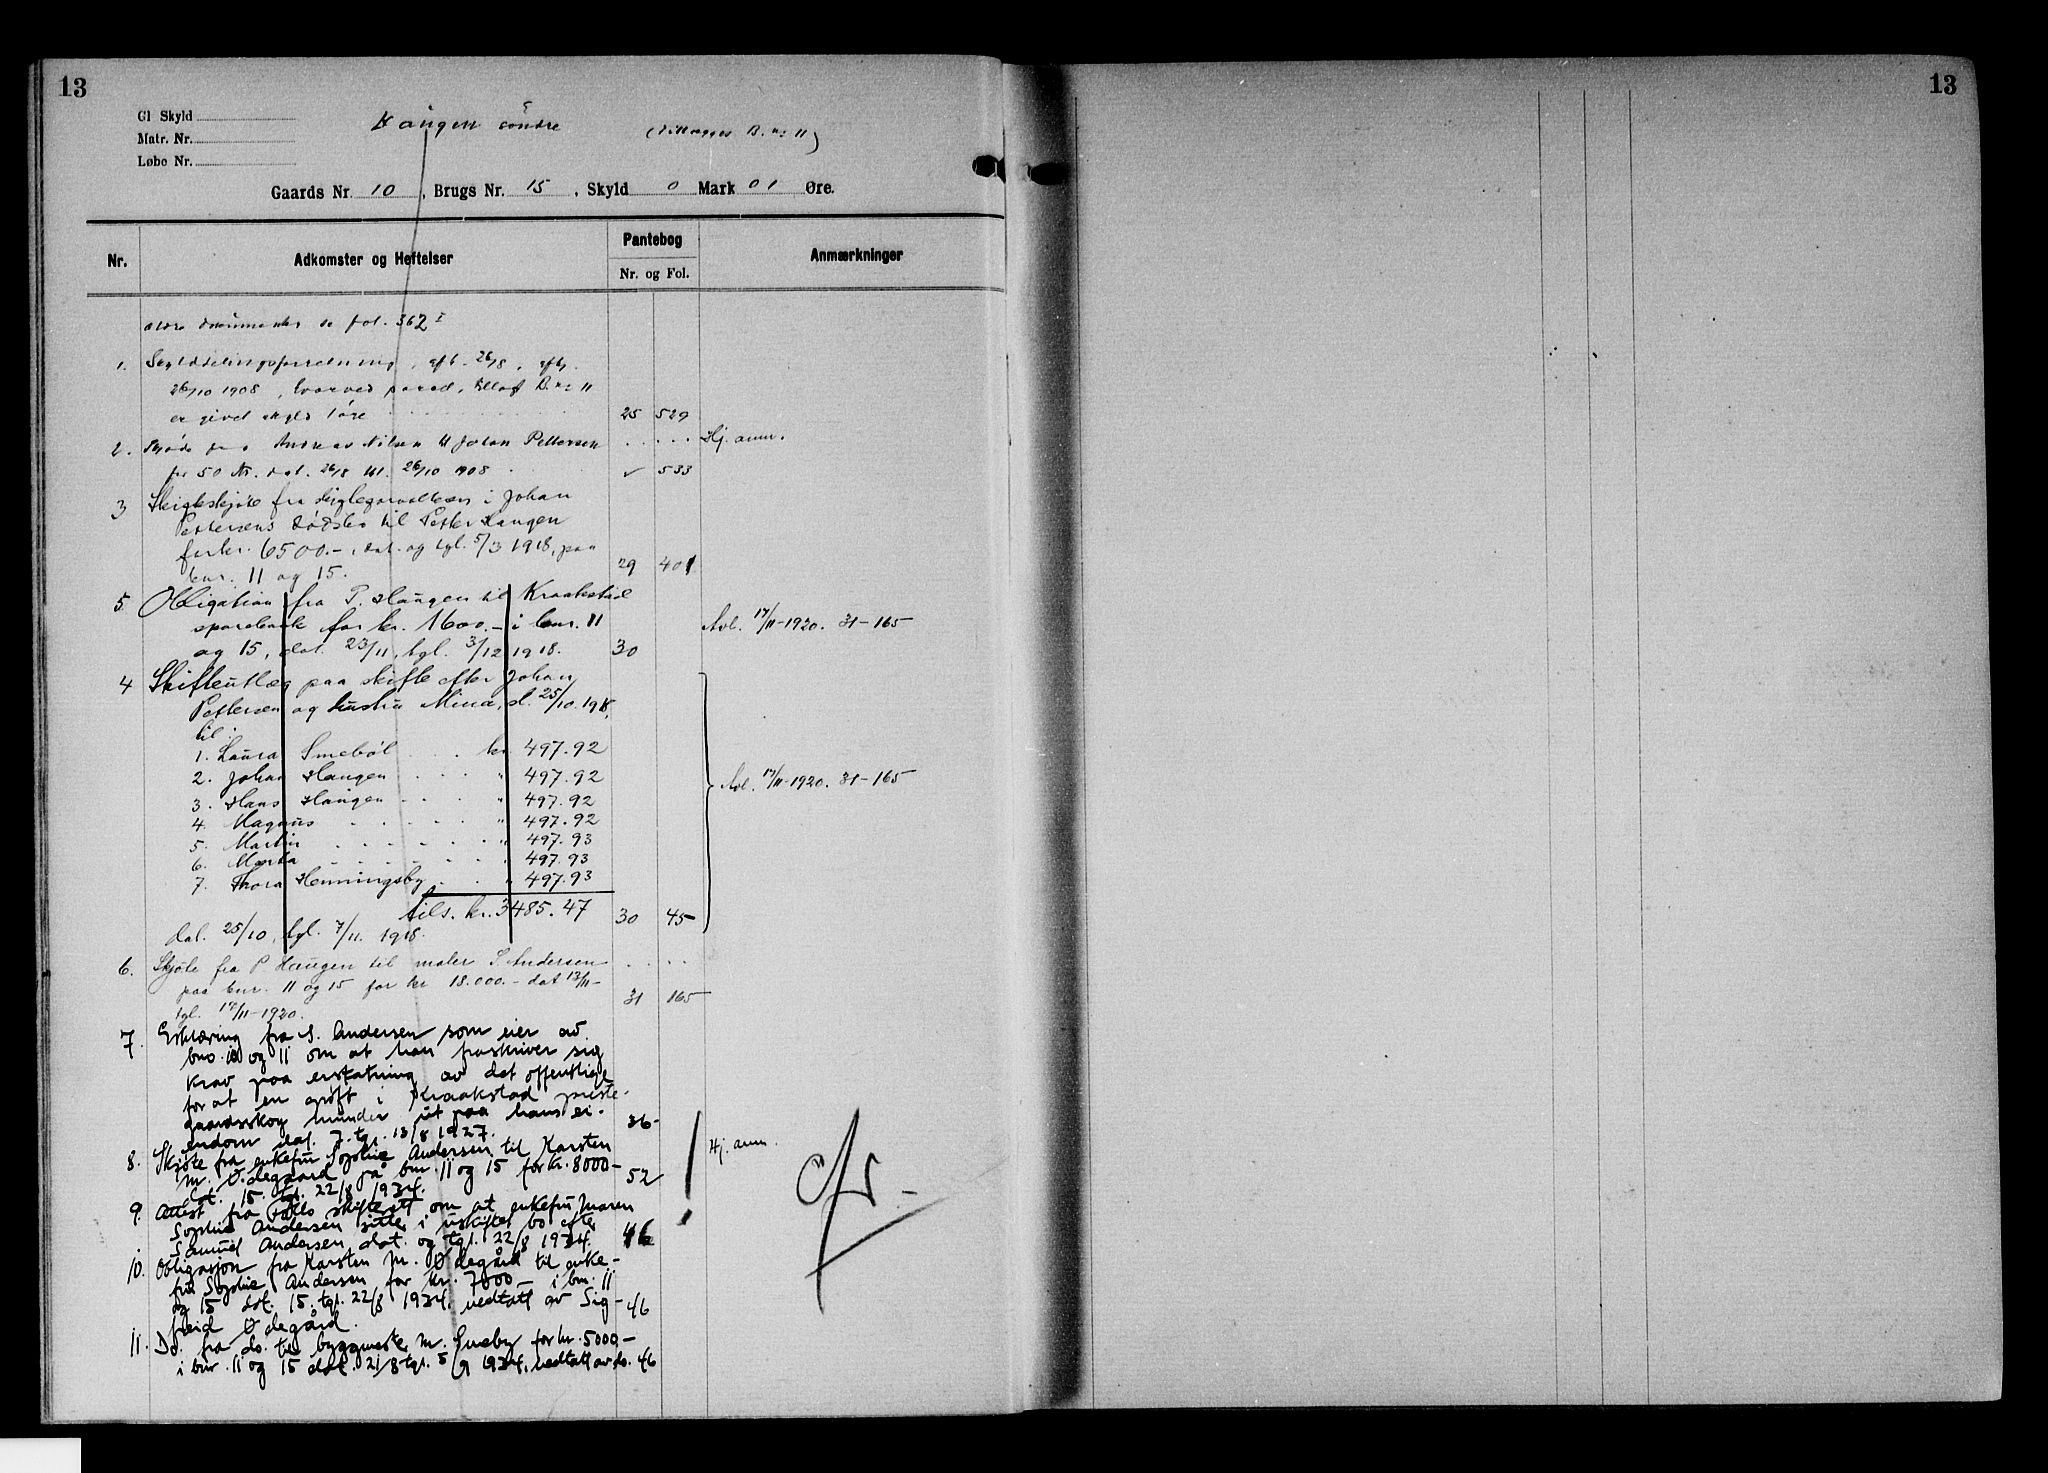 13
13
Gl Skyld
Matr. Nr.
Løbe Nr.
Haugen söndre (tillægges B. nr 11)
Gaards Nr. 10, Brugs Nr. 15, Skyld 0 Mark 01 Øre.
Nr. Adkomster og Heftelser Pantebog Anmærkninger
Nr. og Fol.
Ældre dokumenter se fol. 362 I
1. Skylddelingsforretning, afh. 26/8, tgl.
26/10 1908, hvorved parcel, tillagt B. nr 11
er givet skyld 1 öre 25 529
2. Skjöde fra Andreas Nilsen til Johan Pettersen Hj. anm.
for 50 Kr. dat. 26/8 tgl. 26/10 1908 " 533
3 Skifteskjøte fra skifteforvalteren i Johan
Pettersens dødsbo til Petter Haugen
for kr. 6500.-, dat. og tgl. 5/3 1918, paa
bnr. 11 og 15. 29 401
5. Obligation fra P. Haugen til Kraakstad
sparebank for kr. 1600.- i bnr. 11 Avl. 17/11-1920. 31-165
og 15, dat. 23/11, tgl. 3/12 1918. 30
4 Skifteutlæg paa skifte efter Johan
Pettersen og hustru Mina, sl. 25/10. 1918,
til:
1. Laura Smebøl . . . kr. 497.92
2. Johan Haugen . . . " 497.92 Avl. 17/11-1920. 31-165
3. Hans Haugen . . . " 497.92
4. Magnus . . . . . " 497.92
5. Martin . . . . . . " 497.93
6. Marta . . . . . . " 497.93
7. Thora Henningsby . . " 497.93
tils. kr. 3485.47 30 45
dat. 25/10, tgl. 7/11. 1918.
6. Skjøte fra P Haugen til maler S. Andersen
paa bnr. 11 og 15 for kr 18.000.- dat 13/11-
tgl. 17/11-1920. 31 165
7. Erklæring fra S. Andersen som eier av
bno. 10 og 11 om at han fraskriver sig
krav paa erstatning av det offentlige
for at en grøft i Kraakstad preste-
gaardsskog munder ut paa hans ei-
endom dat. 7. tgl. 13/8 1927. 36-
8. Skjøte fra enkefru Sophie Andersen til Karsten Hj. anm.
M. Ødegaard på bnr. 11 og 15 for kr. 8000-
dat. 15. tgl. 22/8 1934. 52
9. Attest fra Follo skifterett om at enkefru Maren
Sophie Andersen sitter i uskiftet bo efter
Samuel Andersen dat. og tgl. 22/8 1934. 46
10. Obligasjon fra Karsten M. Ødegård til enke-
fru Sophie Andersen for kr. 7000 - i bnr. 11
og 15 dat. 15. tgl. 22/8 1934, vedtatt av Sig-
freid Ødegård. 46
11. Do. fra do. til byggmester M. Smeby for kr. 5000-
i bnr. 11 og 15 dat. 21/8 tgl. 5/9 1934, vedtatt av do. 46